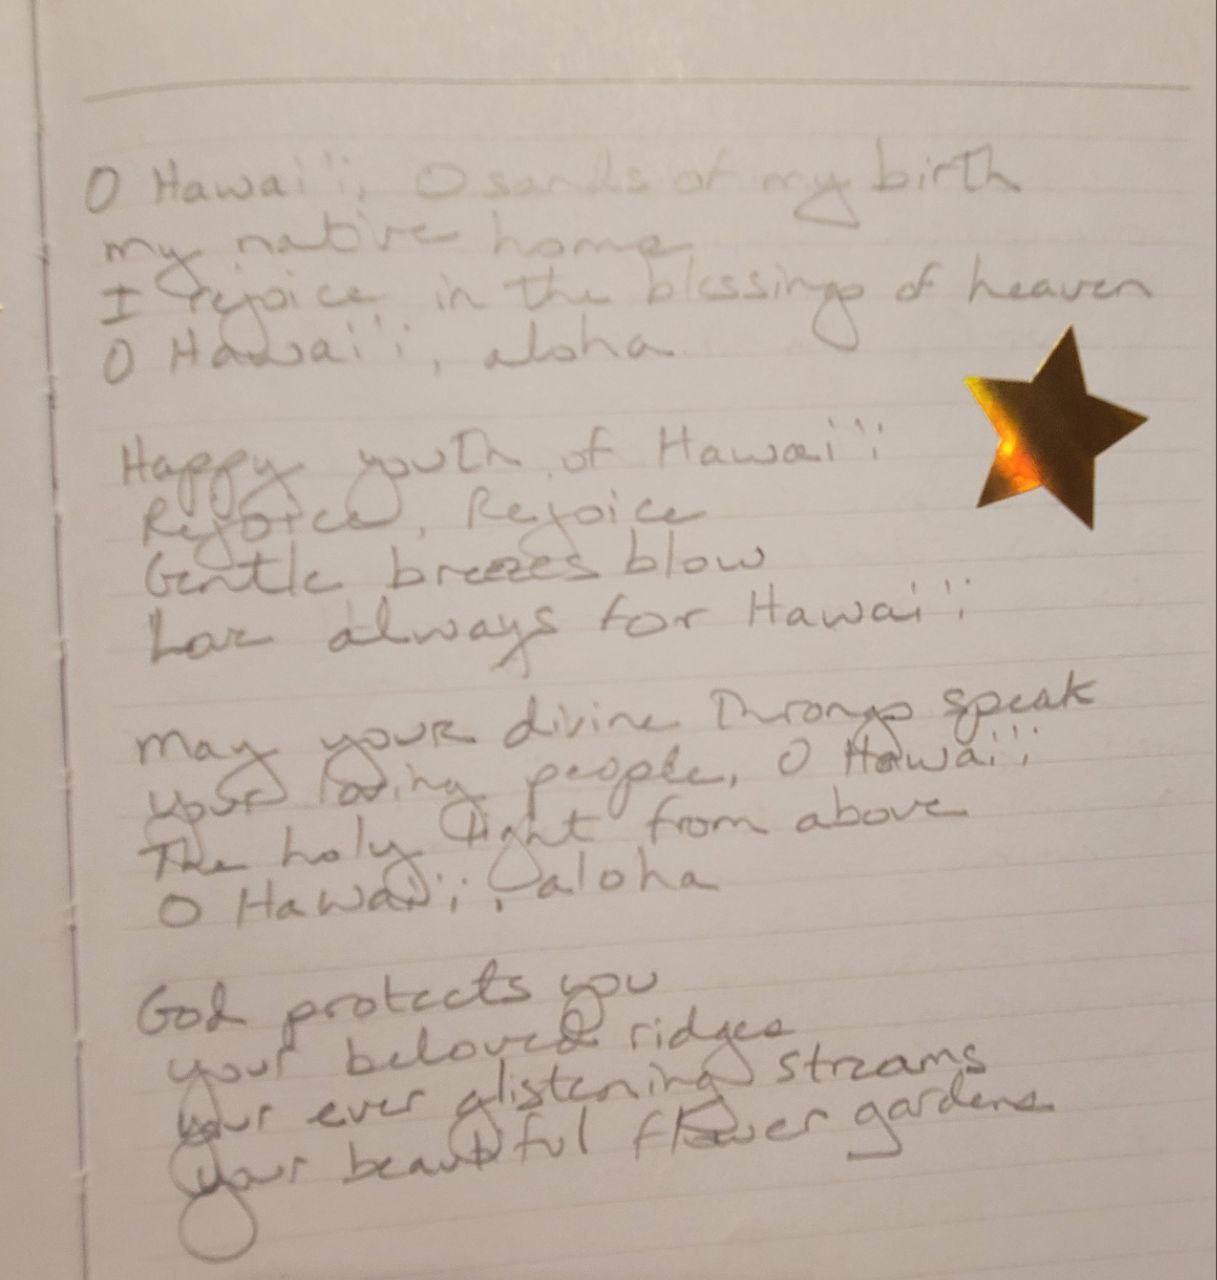 O Hawai'i, O sands of my birth
my native home
I rejoice in the blessings of heaven
O Hawai'i, aloha.
Happy youth of Hawai'i
Rejoice, Rejoice
Gentle breezes blow
always for Hawai'i
May your divine throngs speak
your loving people, O Hawai'i
The holy light from above
O Hawai'i, aloha
God protects you
your beloved ridges
your ever glistening streams
your beautiful flower gardens